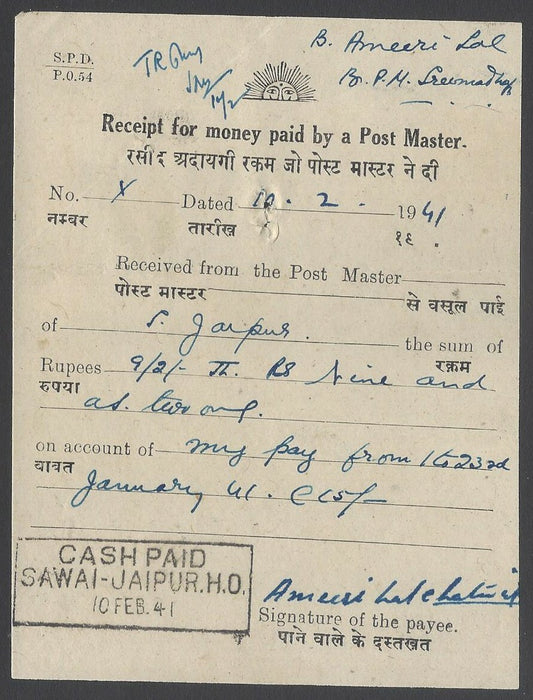 S.P.D.
P.O.54
B. Ameeri Lal
Br. P. M. Sreemadhop
Receipt for money paid by a Post Master.
रसीद अदायगी रक़म जो पोस्ट मास्टर ने दी
No. X Dated 10. 2. 1941
नम्बर तारीख़ १९ .
Received from the Post Master
पोस्ट मास्टर से वसूल पाई
of S. Jaipur. the sum of
रक़म
Rupees 9/2/- Rs Nine and
रुपया
as. two only.
on account of my pay from 1 to 23rd
बाबत
January 41. @ 15/-
CASH PAID
SAWAI-JAIPUR.H.O.
10 FEB. 41
Ameeri Lal
Signature of the payee.
पाने वाले के दस्तख़त